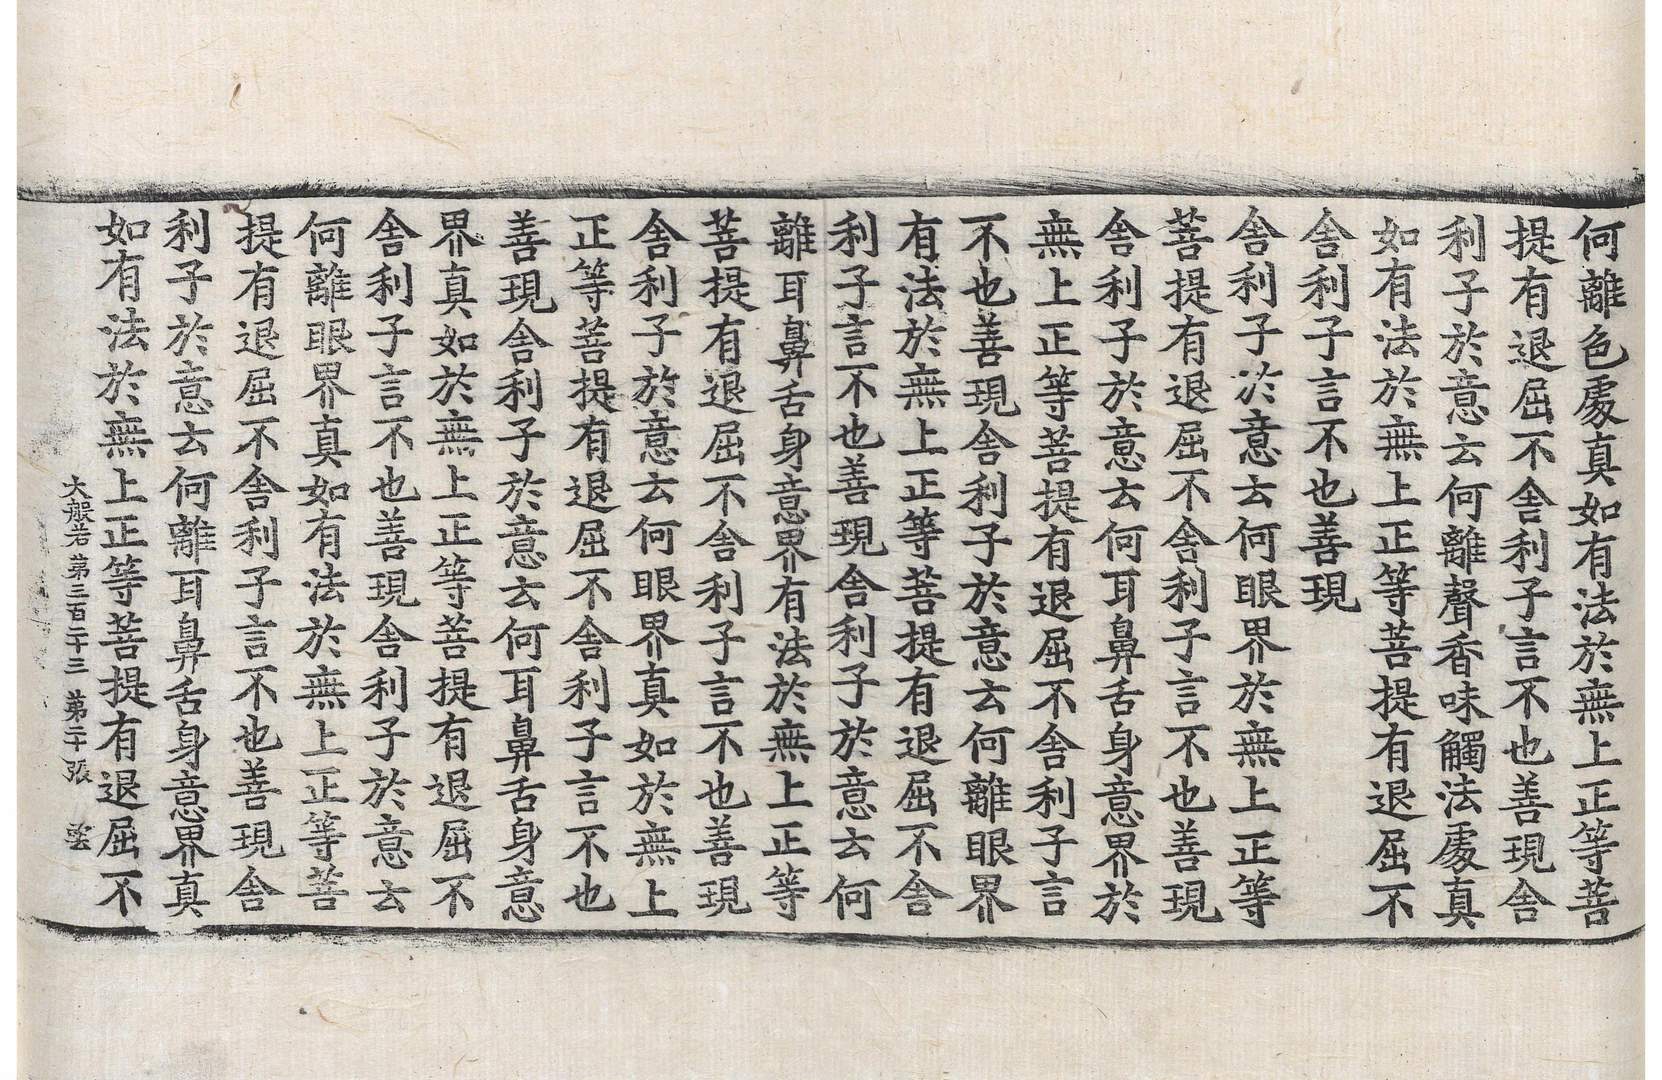 何離色處真如有法於無上正等菩
提有退屈不舍利子言不也善現舍
利子於意云何離聲香味觸法處真
如有法於無上正等菩提有退屈不
舍利子言不也善現
舍利子於意云何眼界於無上正等
菩提有退屈不舍利子言不也善現
舍利子於意云何耳鼻舌身意界於
無上正等菩提有退屈不舍利子言
不也善現舍利子於意云何離眼界
有法於無上正等菩提有退屈不舍
利子言不也善現舍利子於意云何
離耳鼻舌身意界有法於無上正等
菩提有退屈不舍利子言不也善現
舍利子於意云何眼界真如於無上
正等菩提有退屈不舍利子言不也
善現舍利子於意云何耳鼻舌身意
界真如於無上正等菩提有退屈不
舍利子言不也善現舍利子於意云
何離眼界真如有法於無上正等菩
提有退屈不舍利子言不也善現舍
利子於意云何離耳鼻舌身意界真
如有法於無上正等菩提有退屈不
大般若第三百二十三 第二十張